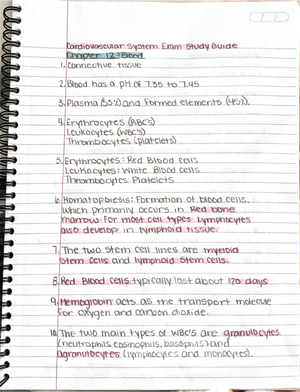 Cardiovascular System Exam Study Guide
Chapter 12: Blood
1. Connective tissue
2. Blood has a pH of 7.35 to 7.45
3. Plasma (55%) and Formed elements (45%).
4. Erythrocytes (RBC's)
Leukocytes (WBC's)
Thrombocytes (platelets)
5. Erythrocytes: Red Blood cells
Leukocytes: White Blood cells
Thrombocytes: Platelets
6. Hematopoiesis: Formation of blood cells,
which primarily occurs in Red bone
marrow for most cell types. Lymphocytes
also develop in lymphoid tissue.
7. The two stem cell lines are myeloid
stem cells and lymphoid stem cells.
8. Red Blood cells typically last about 120 days
9. Hemoglobin acts as the transport molecule
for oxygen and carbon dioxide.
10. The two main types of WBC's are granulocytes
(neutrophils eosinophils, basophils) and
agranulocytes (lymphocytes and monocytes).